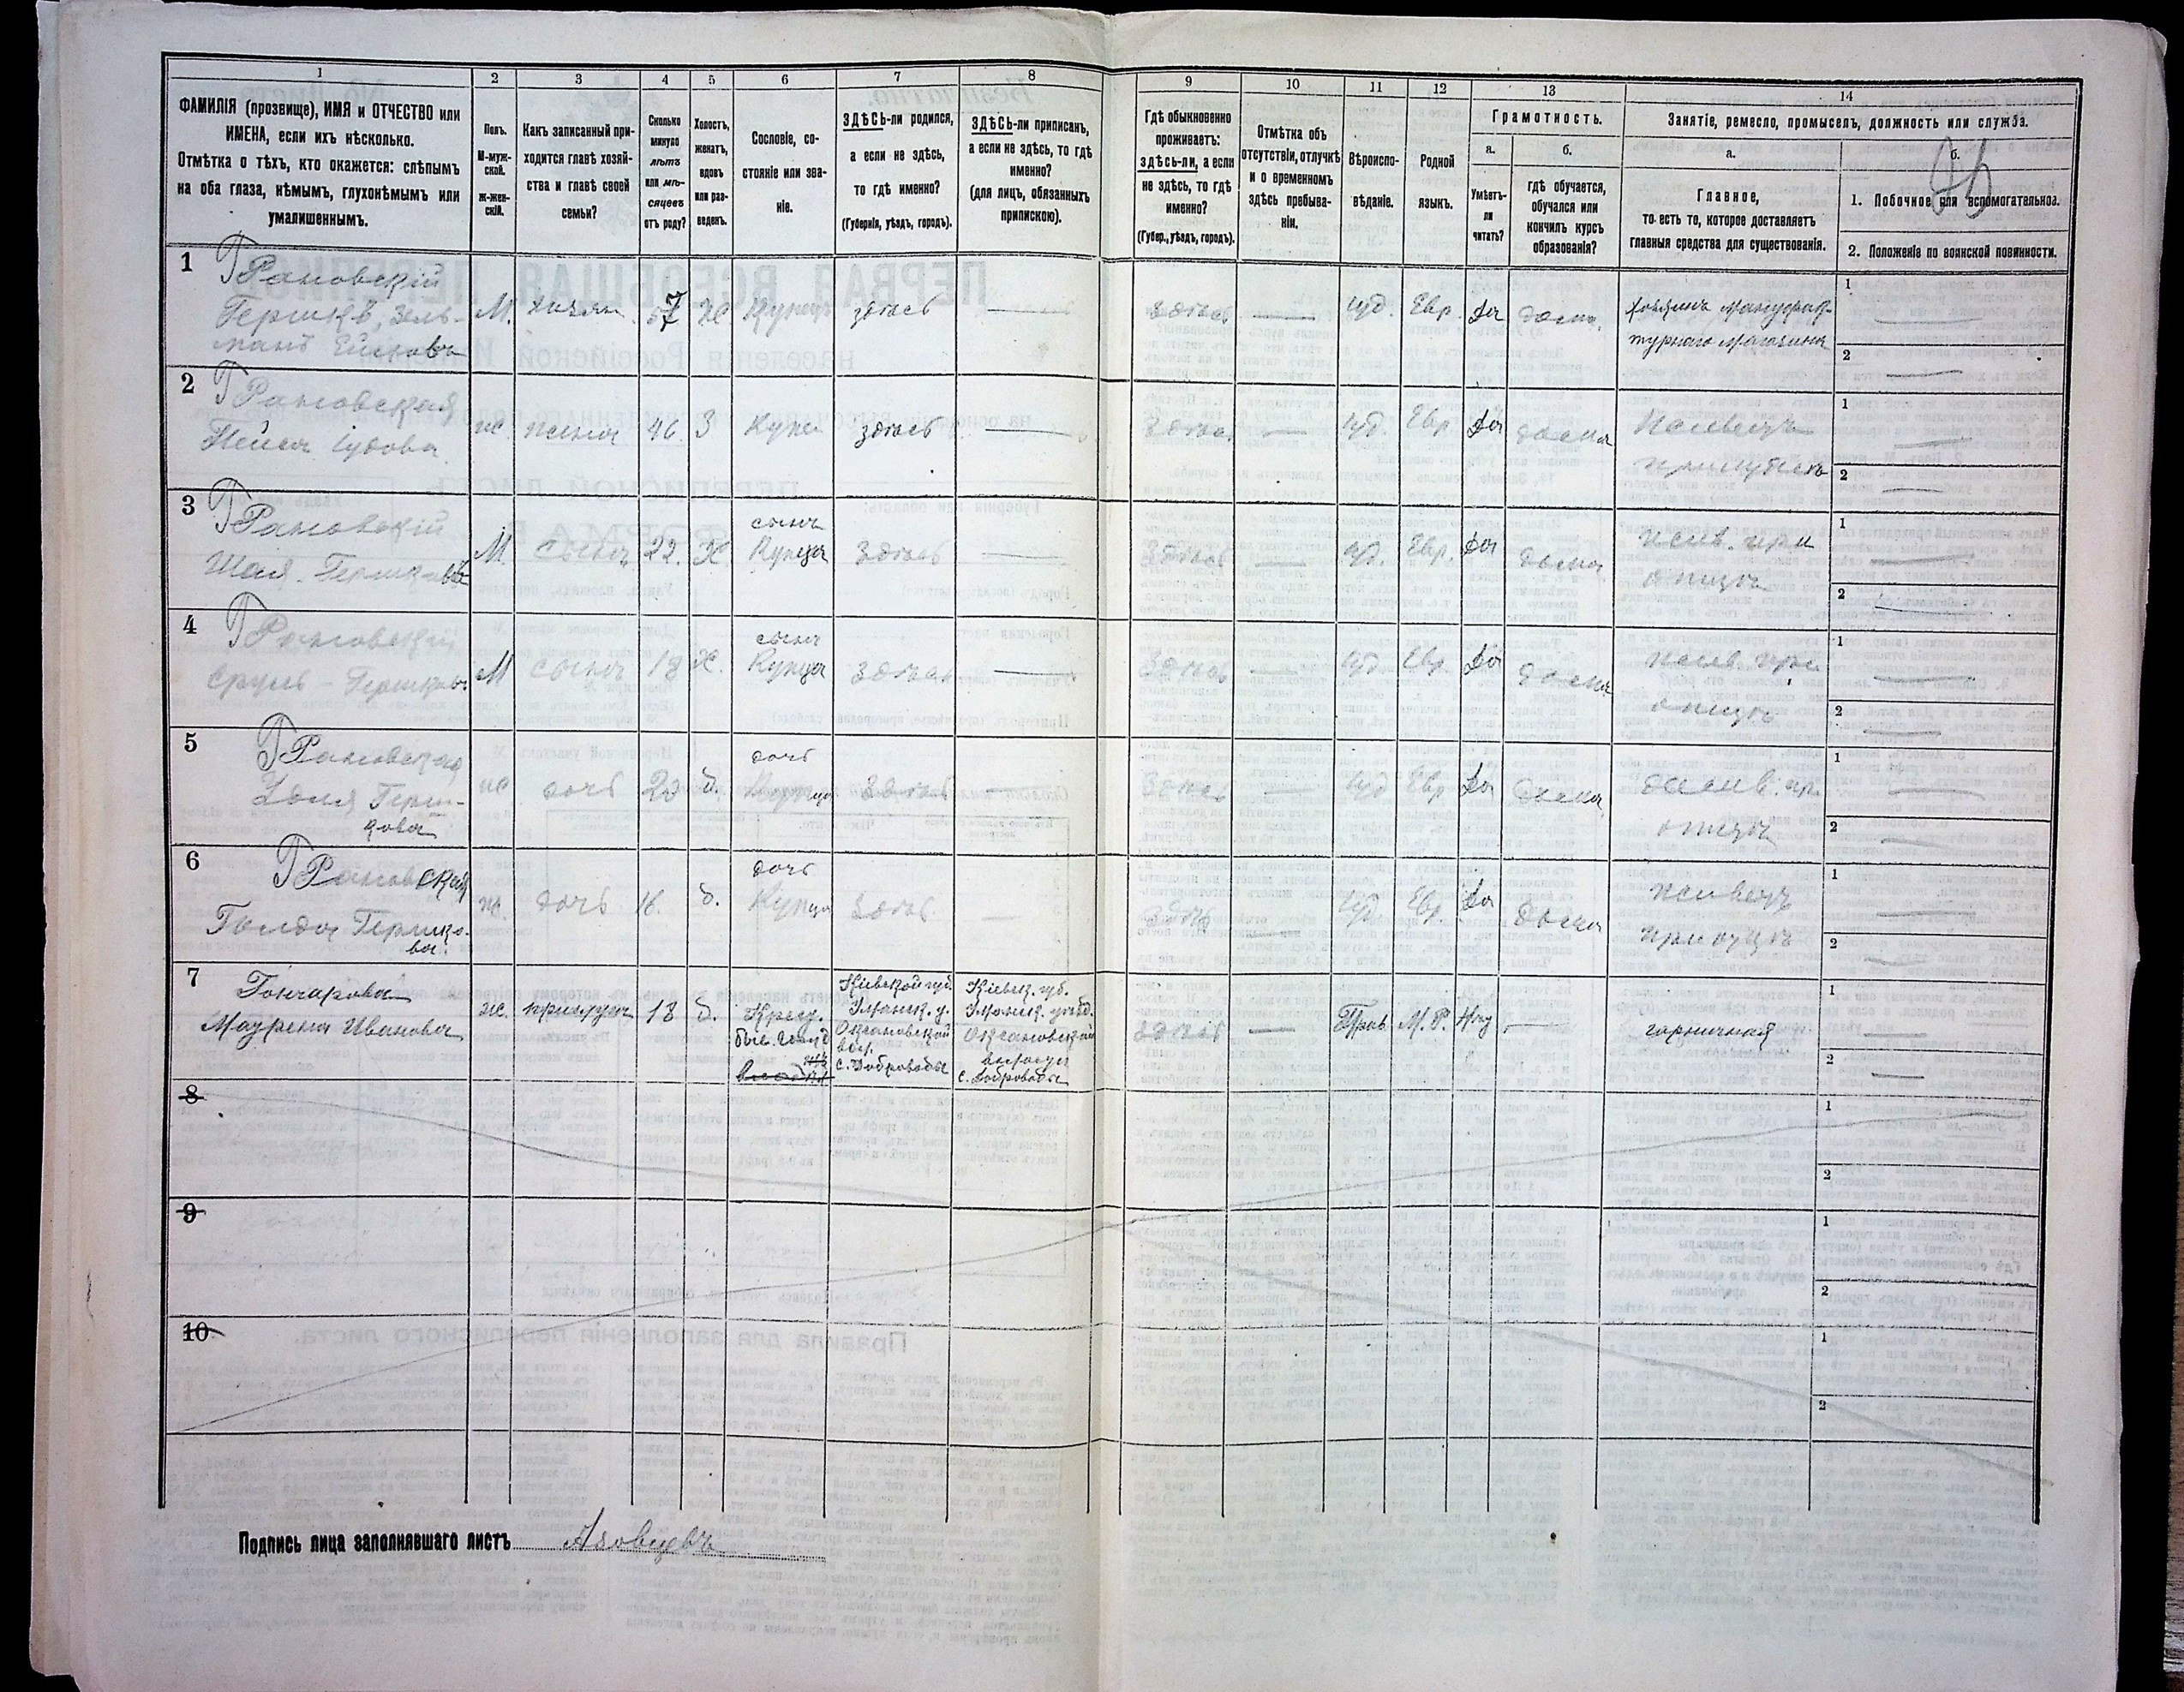 1 2 3 4 5 6 7 8 9 10 11 12 13 14
ФАМИЛІЯ (прозвище), ИМЯ и ОТЧЕСТВО или
ИМЕНА, если ихъ нѣсколько.
Отмѣтка о тѣхъ, кто окажется: слѣпымъ
на оба глаза, нѣмымъ, глухонѣмымъ или
умалишеннымъ.
Полъ.
М-муж-
ской.
Ж-жен-
скій.
Какъ записанный при-
ходится главѣ хозяй-
ства и главѣ своей
семьи?
Сколько
минуло
лѣтъ
или мѣ-
сяцевъ
отъ роду?
Холостъ,
женатъ,
вдовъ
или раз-
веденъ.
Сословіе, со-
стояніе или зва-
ніе.
ЗДѢСЬ-ли родился,
а если не здѣсь,
то гдѣ именно?
(Губернія, уѣздъ, городъ).
ЗДѢСЬ-ли приписанъ,
а если не здѣсь, то гдѣ
именно?
(для лицъ, обязанныхъ
припискою).
Гдѣ обыкновенно
проживаетъ:
здѣсь-ли, а если
не здѣсь, то гдѣ
именно?
(Губер., уѣздъ, городъ).
Отмѣтка объ
отсутствіи, отлучкѣ
и о временномъ
здѣсь пребыва-
ніи.
Вѣроиспо-
вѣданіе.
Родной
языкъ.
Грамотность.
а.
Умѣетъ-
ли
читать?
б.
гдѣ обучается,
обучался или
кончилъ курсъ
образованія?
Занятіе, ремесло, промыселъ, должность или служба.
а.
Главное,
то есть то, которое доставляетъ
главныя средства для существованія.
б.
1. Побочное или вспомогательное.
2. Положеніе по воинской повинности.
1
Грановскій
Гершкъ, Зель-
манъ
М. 57 Купецъ здѣсь здѣсь Іуд. Евр. Да дома.
Хозяинъ Мануфак-
турнаго магазина
1
2
2
Грановская
Іудова
ж. жена 46. З Купе здѣсь здѣсь Іуд. Евр Да дома
1
2
3
Грановскій
Шая Гершковъ
М. сынъ 22. Х. сынъ
Купца здѣсь здѣсь Іуд. Евр. Да дома
отцѣ
1
2
4
Грановскій
Сруль - Гершковъ
М сынъ 18 Х. сынъ
Купца здѣсь здѣсь Іуд. Евр. Да дома
отцѣ
1
2
5
Грановская
Герш-
кова
ж дочь д. дочь
Купца здѣсь здѣсь Іуд Евр Да дома
отцѣ
1
2
6
Грановская
Голда Гершко-
ва.
ж. дочь 16. д. дочь
Купца здѣсь здѣсь Іуд Евр. Да дома
при отцѣ
1
2
7
Гончарова
Ивановна
ж. прислуга 18 д. Крест.
быв.
Кіевской губ.
Уманск. у.
вол.
с. Добровода
Кіевск. губ.
Уманск. уѣзд.
волости
с. Доброводы
здѣсь Прав. М. Р. Нѣт
горничная
1
2
8
1
2
9
1
2
10
1
2
Подпись лица заполнявшаго листъ Азовцевъ